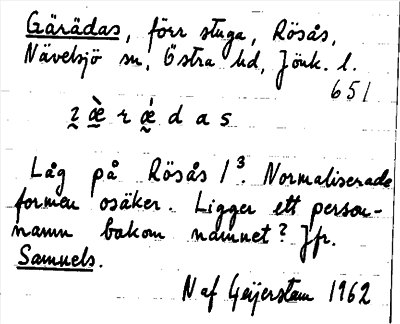 Gärädas, förr stuga, Rösås,
Nävelsjö sn, Östra hd, Jönk. l.
651
z̰ æ̰̀ r ǽ̰ d a s
Låg på Rösås 1³. Normaliserade
formen osäker. Ligger ett person-
namn bakom namnet? Jfr.
Samuels.
N af Geijerstam 1962